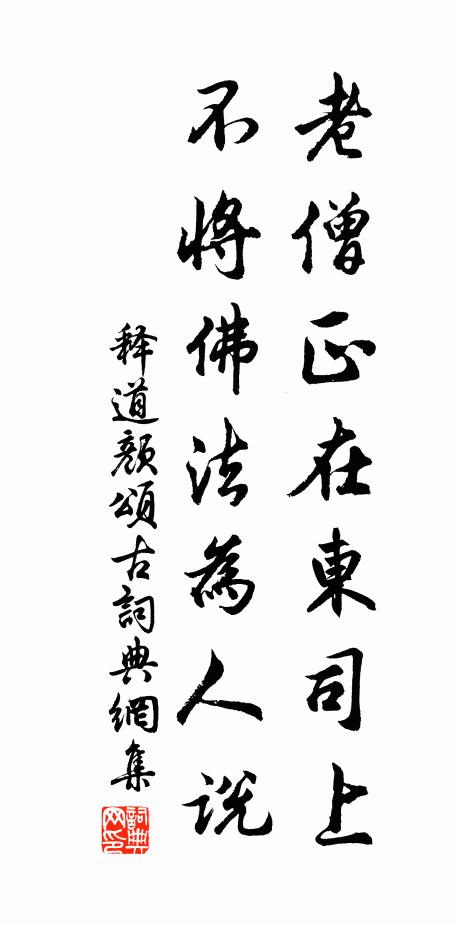 老僧正在東司上
不將佛法為人說
释道顏頌古詞典網集
詞典网印